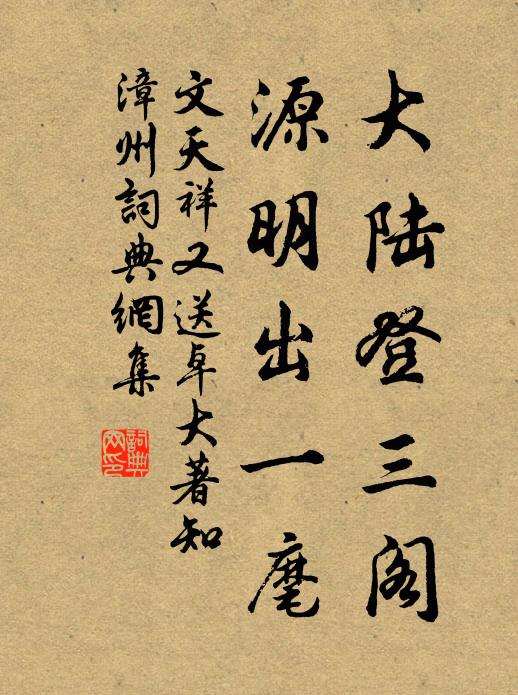 大陆登三阁
源明出一麾
文天祥又送卓大著知
漳州詞典網集
詞典网印